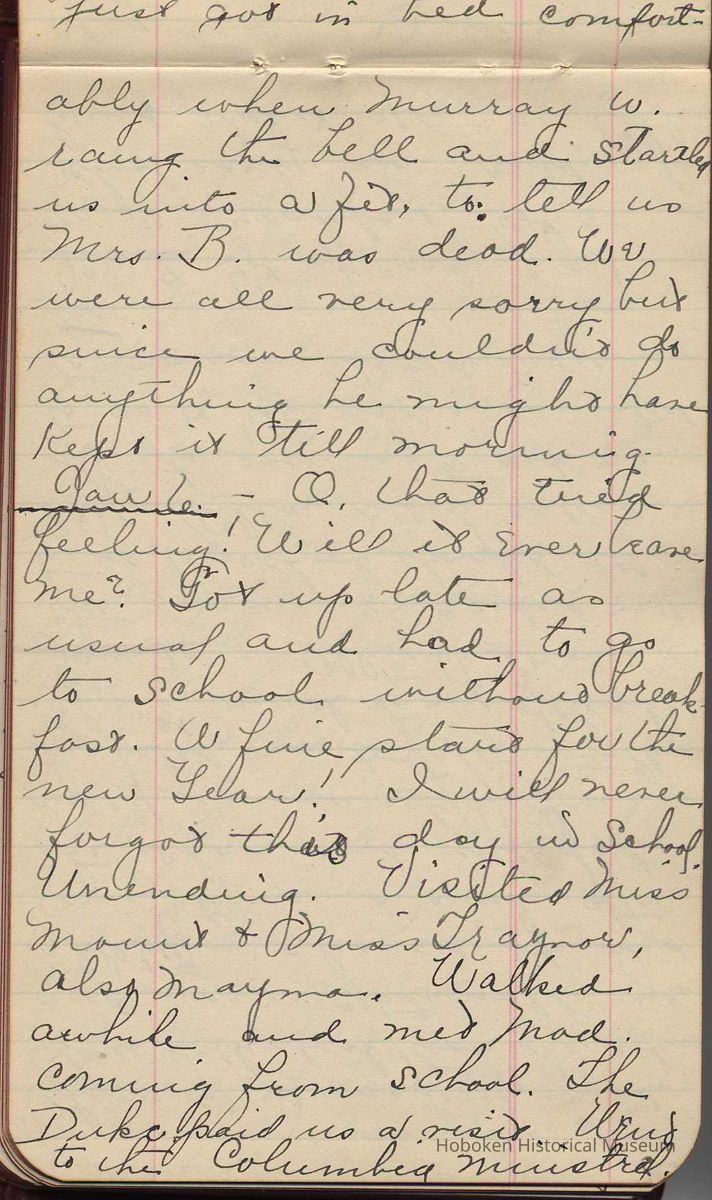 just got in bed comfort-
ably when Murray W.
rang the bell and startled
us into a fit, to tell us
Mrs. B. was dead. We
were all very sorry but
since we couldn't do
anything he might have
kept it till morning.
Jan 2. - O, that tired
feeling! Will it ever leave
me? Got up late as
usual and had to go
to school without break-
fast. A fine start for the
new Year! I will never
forgot this day in School.
Unending. Visited Miss
Mount & Miss Traynor,
also Mayma. Walked
awhile and met Mad.
coming from school. The
Duke paid us a visit. Went
to the Columbia minstrel.
Hoboken Historical Museum